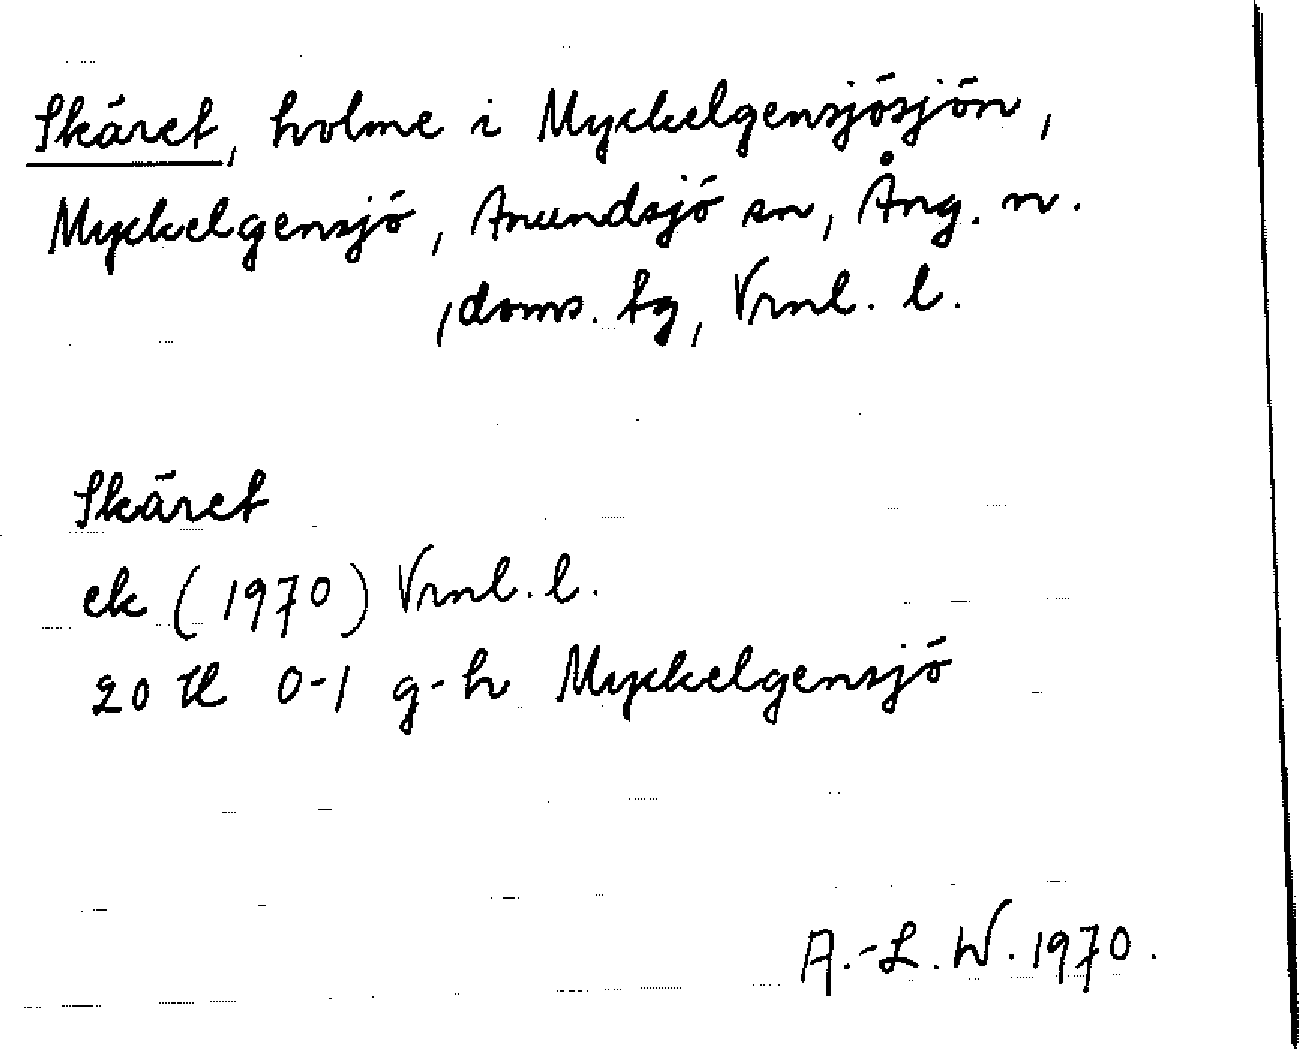 Skäret, holme i Myckelgensjösjön,
Myckelgensjö, Anundsjö sn, Ång. n.
, doms. tg, Vrnl. l.
Skäret
ek (1970) Vrnl. l.
20 H 0-1 g-h Myckelgensjö
A.-L. W. 1970.